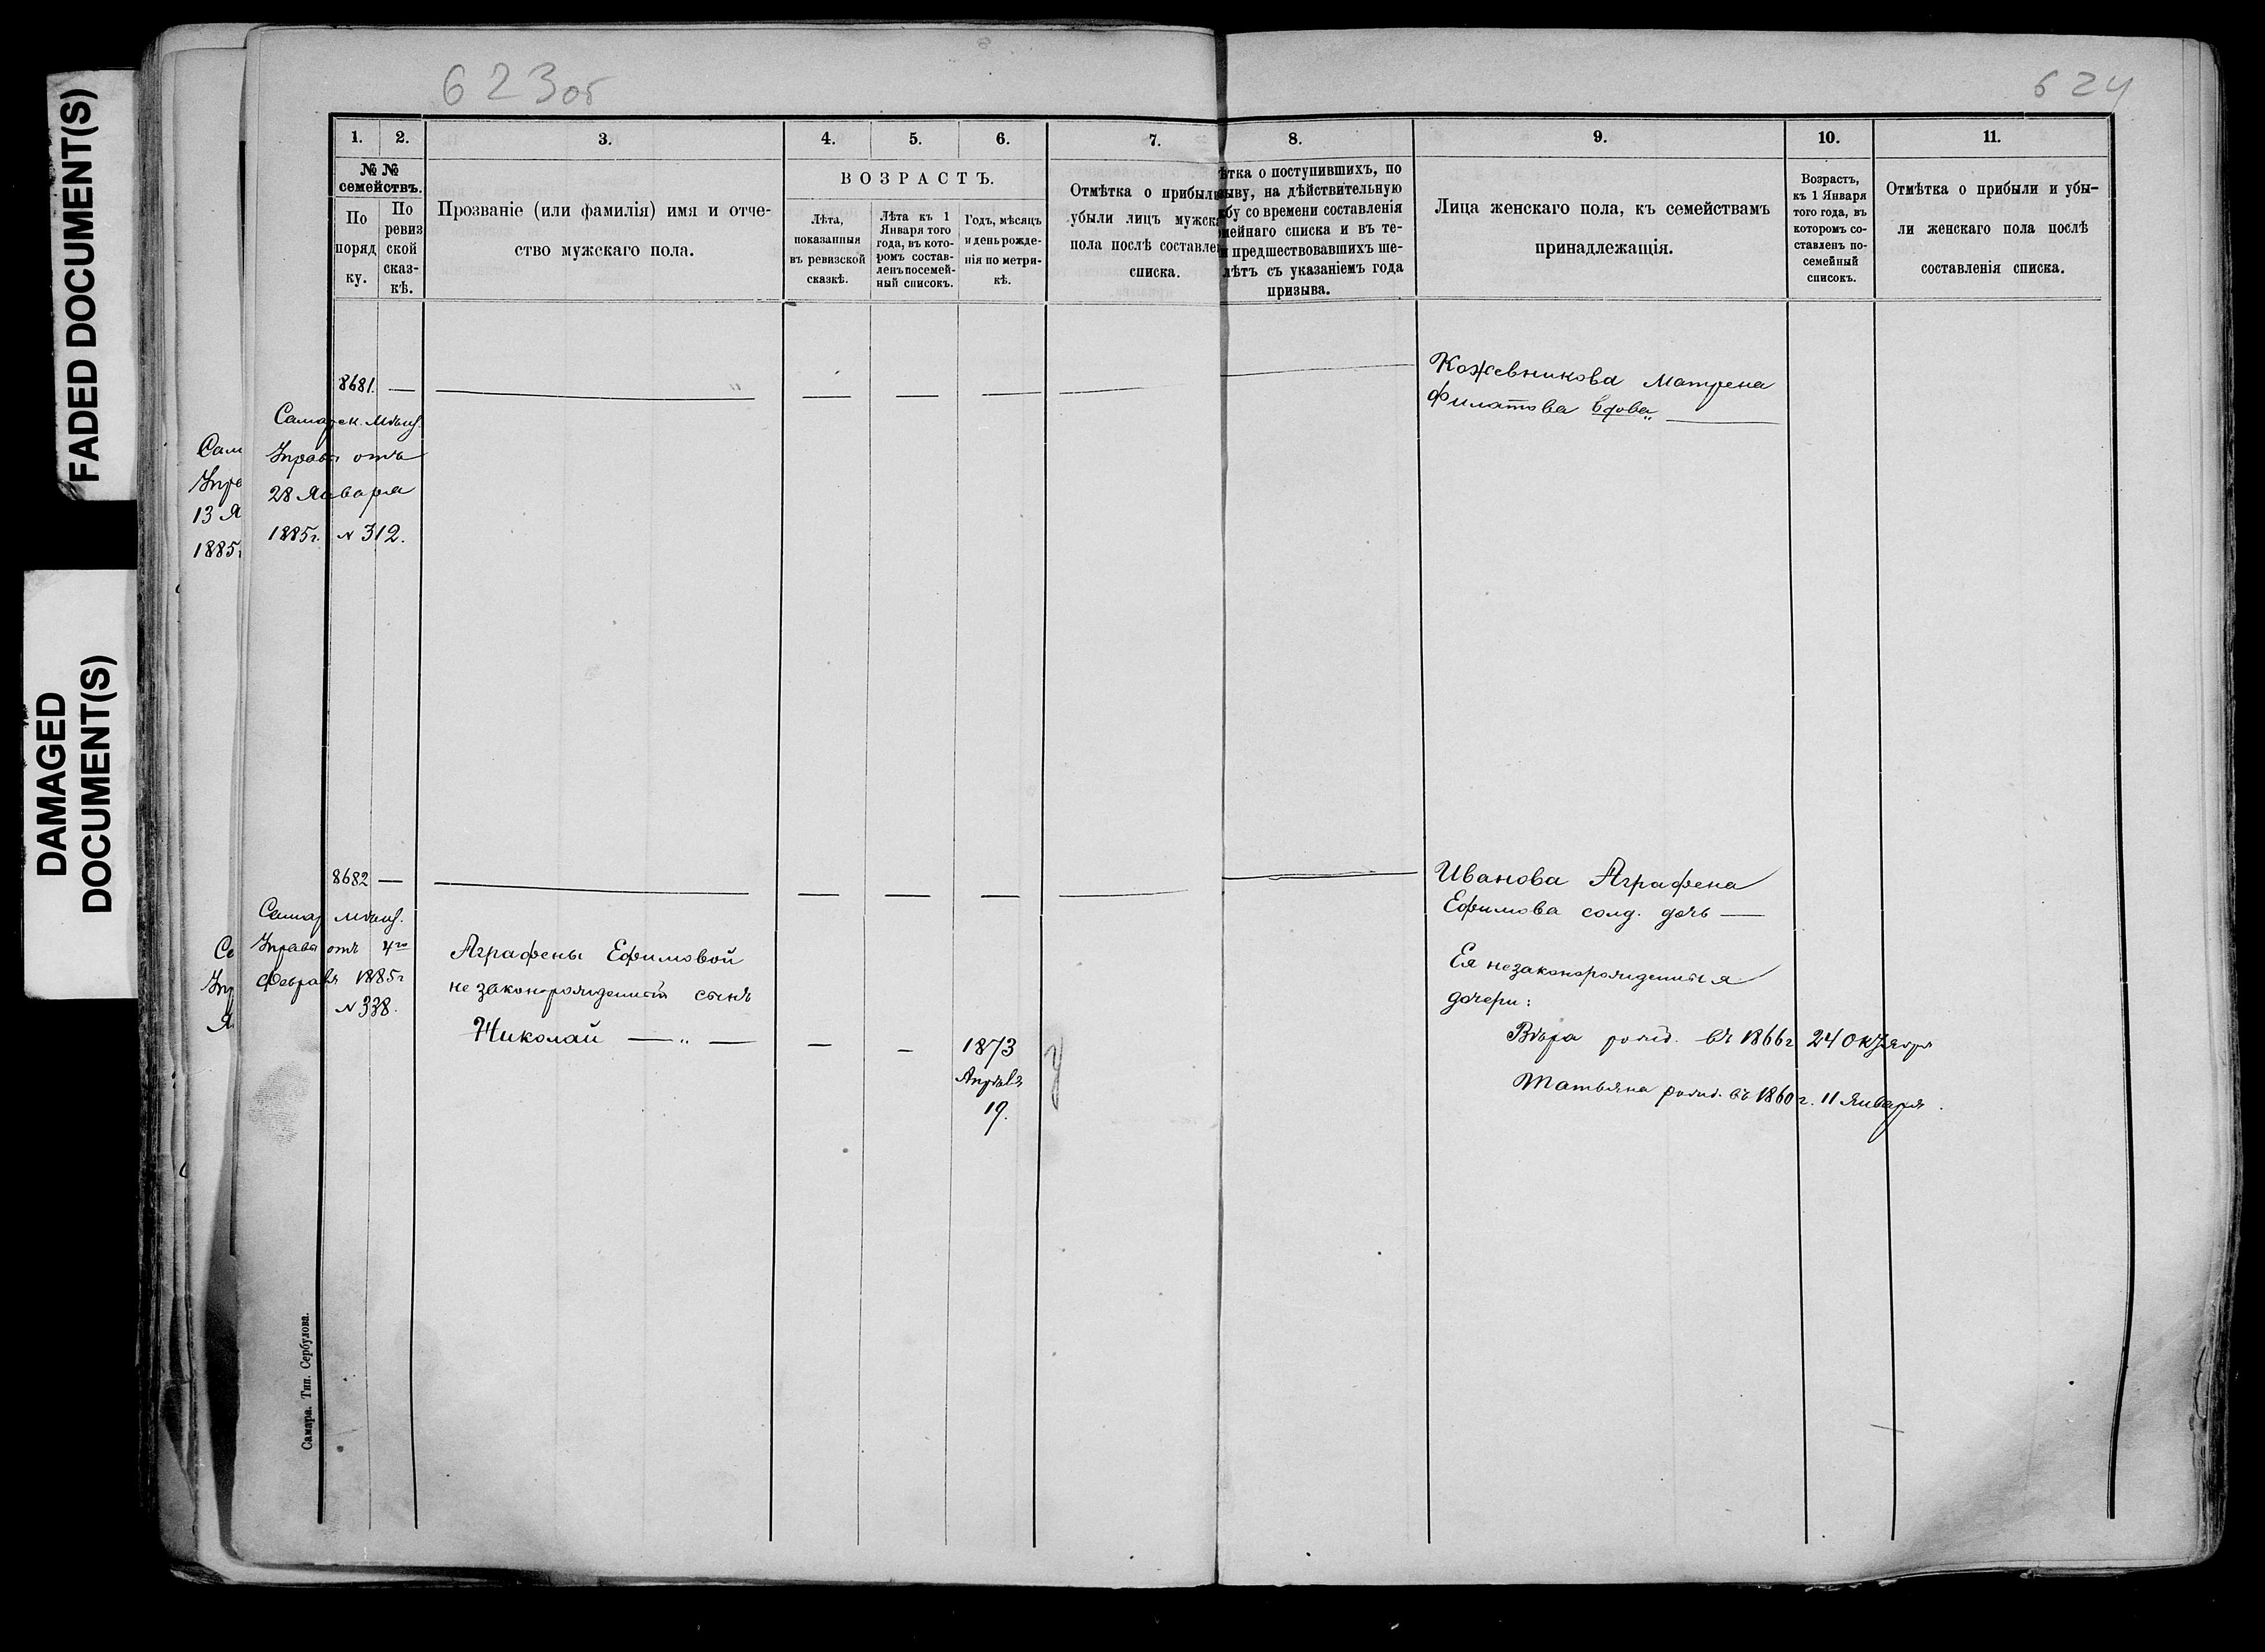 FADED DOCUMENT(S)
DAMAGED
DOCUMENT(S)
623об
624
1.
2.
3.
4.
5.
6.
7.
8.
9.
10.
11.
№ №
семействъ.
По
поряд
ку.
По
ревиз
ской
сказ-
кѣ.
Прозваніе (или фамилія) имя и отче-
ство мужскаго пола.
ВОЗРАСТЪ.
Лѣта,
показанныя
въ ревизской
сказкѣ.
Лѣта къ 1
Января того
года, въ кото-
ромъ состав-
ленъ посемей-
ный списокъ.
Годъ, мѣсяцъ
и день рожде-
нія по метри-
кѣ.
Отмѣтка о прибыли
убыли лицъ мужска
пола послѣ составле
списка.
ѣтка о поступившихъ, по
ыву, на дѣйствительную
жбу со времени составленія
мейнаго списка и въ те-
и предшествовавшихъ ше-
лѣтъ съ указаніемъ года
призыва.
Лица женскаго пола, къ семействамъ
принадлежащія.
Возрастъ,
къ 1 Января
того года, въ
которомъ со-
ставленъ по-
семейный
списокъ.
Отмѣтка о прибыли и убы-
ли женскаго пола послѣ
составленія списка.
8681. —
Самарск. Мѣщ.
Управы отъ
28 Января
1885г. № 312.
Кожевникова Матрена
Филатова вдова
Сам
Упра
13 Я
1885г
8682 —
Самар Мѣщ.
Управы отъ 4го
Февраля 1885г
№ 338.
Аграфены Ефимовой
незаконорожденный сынъ
Николай — „ —
1873
Апрѣля
19.
Иванова Аграфена
Ефимова солд. дочь —
Ея незаконорожденныя
дочери:
Вѣра рожд. въ 1866г 24 Октября
Татьяна рожд. въ 1860г. 11 Января.
Са
Упр
Я
Самара. Тип. Сербулова.